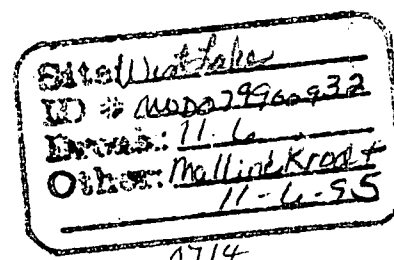 Site West Lake
ID # MOD079900932
Break: 11.6
Other: Mallinckrodt
11-6-95
0714